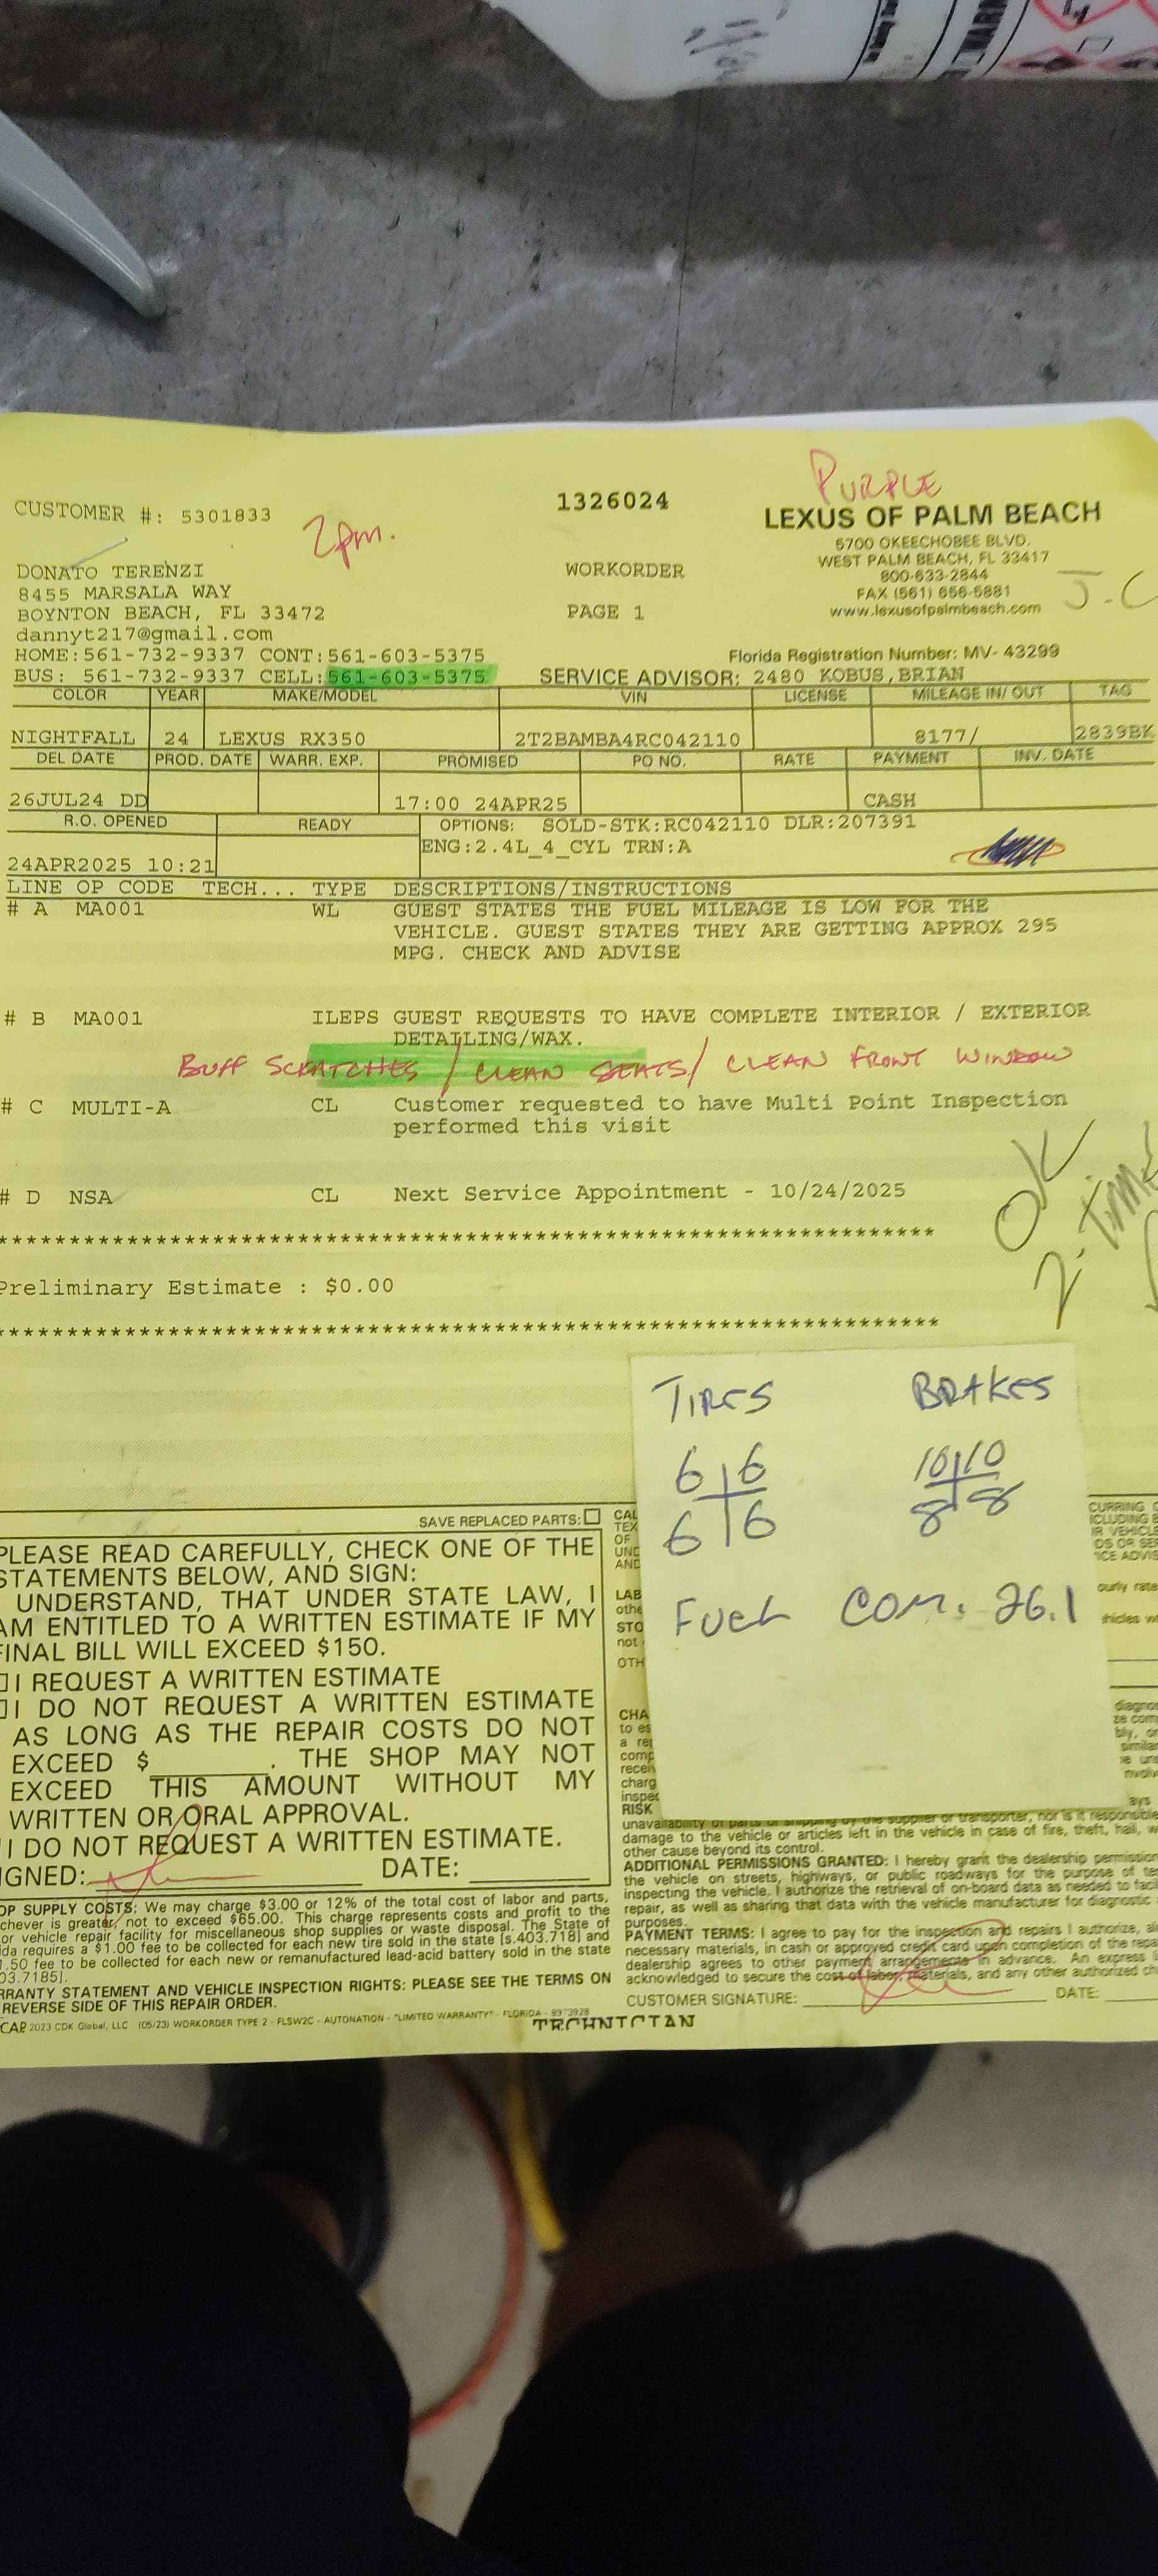 PURPLE
CUSTOMER #: 5301833
2pm.
1326024
LEXUS OF PALM BEACH
5700 OKEECHOBEE BLVD.
WEST PALM BEACH, FL 33417
800-633-2844
FAX (561) 656-5881
www.lexusofpalmbeach.com
J.C
WORKORDER
PAGE 1
DONATO TERENZI
8455 MARSALA WAY
BOYNTON BEACH, FL 33472
dannyt217@gmail.com
HOME:561-732-9337 CONT:561-603-5375
BUS: 561-732-9337 CELL:561-603-5375
Florida Registration Number: MV- 43299
SERVICE ADVISOR: 2480 KOBUS,BRIAN
COLOR YEAR MAKE/MODEL VIN LICENSE MILEAGE IN/ OUT TAG
NIGHTFALL 24 LEXUS RX350 2T2BAMBA4RC042110 8177/ 2839BK
DEL DATE PROD. DATE WARR. EXP. PROMISED PO NO. RATE PAYMENT INV. DATE
26JUL24 DD 17:00 24APR25 CASH
R.O. OPENED READY OPTIONS: SOLD-STK:RC042110 DLR:207391
ENG:2.4L_4_CYL TRN:A
24APR2025 10:21
LINE OP CODE TECH... TYPE DESCRIPTIONS/INSTRUCTIONS
# A MA001 WL GUEST STATES THE FUEL MILEAGE IS LOW FOR THE
VEHICLE. GUEST STATES THEY ARE GETTING APPROX 295
MPG. CHECK AND ADVISE
# B MA001 ILEPS GUEST REQUESTS TO HAVE COMPLETE INTERIOR / EXTERIOR
DETAILING/WAX.
BUFF SCRATCHES / CLEAN SEATS/ CLEAN FRONT WINDOW
# C MULTI-A CL Customer requested to have Multi Point Inspection
performed this visit
# D NSA CL Next Service Appointment - 10/24/2025
OK
2. Time
*****************************************************************
Preliminary Estimate : $0.00
*****************************************************************
TIRES BRAKES
6 6 10 10
6 6 8 8
FUEL CON. 26.1
SAVE REPLACED PARTS:
PLEASE READ CAREFULLY, CHECK ONE OF THE
STATEMENTS BELOW, AND SIGN:
UNDERSTAND, THAT UNDER STATE LAW, I
AM ENTITLED TO A WRITTEN ESTIMATE IF MY
FINAL BILL WILL EXCEED $150.
I REQUEST A WRITTEN ESTIMATE
I DO NOT REQUEST A WRITTEN ESTIMATE
AS LONG AS THE REPAIR COSTS DO NOT
EXCEED $________. THE SHOP MAY NOT
EXCEED THIS AMOUNT WITHOUT MY
WRITTEN OR ORAL APPROVAL.
I DO NOT REQUEST A WRITTEN ESTIMATE.
IGNED: DATE:
OP SUPPLY COSTS: We may charge $3.00 or 12% of the total cost of labor and parts,
chever is greater, not to exceed $65.00. This charge represents costs and profit to the
or vehicle repair facility for miscellaneous shop supplies or waste disposal. The State of
ida requires a $1.00 fee to be collected for each new tire sold in the state [s.403.718] and
1.50 fee to be collected for each new or remanufactured lead-acid battery sold in the state
03.7185].
RRANTY STATEMENT AND VEHICLE INSPECTION RIGHTS: PLEASE SEE THE TERMS ON
REVERSE SIDE OF THIS REPAIR ORDER.
CAP 2023 CDK Global, LLC (05/23) WORKORDER TYPE 2 - FLSW2C - AUTONATION - "LIMITED WARRANTY" - FLORIDA
TECHNICIAN
RISK
unavailability of parts or shipping by the supplier or transporter, nor is it responsible
damage to the vehicle or articles left in the vehicle in case of fire, theft, hail,
other cause beyond its control.
ADDITIONAL PERMISSIONS GRANTED: I hereby grant the dealership permission
the vehicle on streets, highways, or public roadways for the purpose of
inspecting the vehicle. I authorize the retrieval of on-board data as needed to
repair, as well as sharing that data with the vehicle manufacturer for diagnostic
purposes.
PAYMENT TERMS: I agree to pay for the inspection and repairs I authorize,
necessary materials, in cash or approved credit card upon completion of the
dealership agrees to other payment arrangements in advance. An express
acknowledged to secure the cost of labor, materials, and any other authorized
CUSTOMER SIGNATURE: DATE: